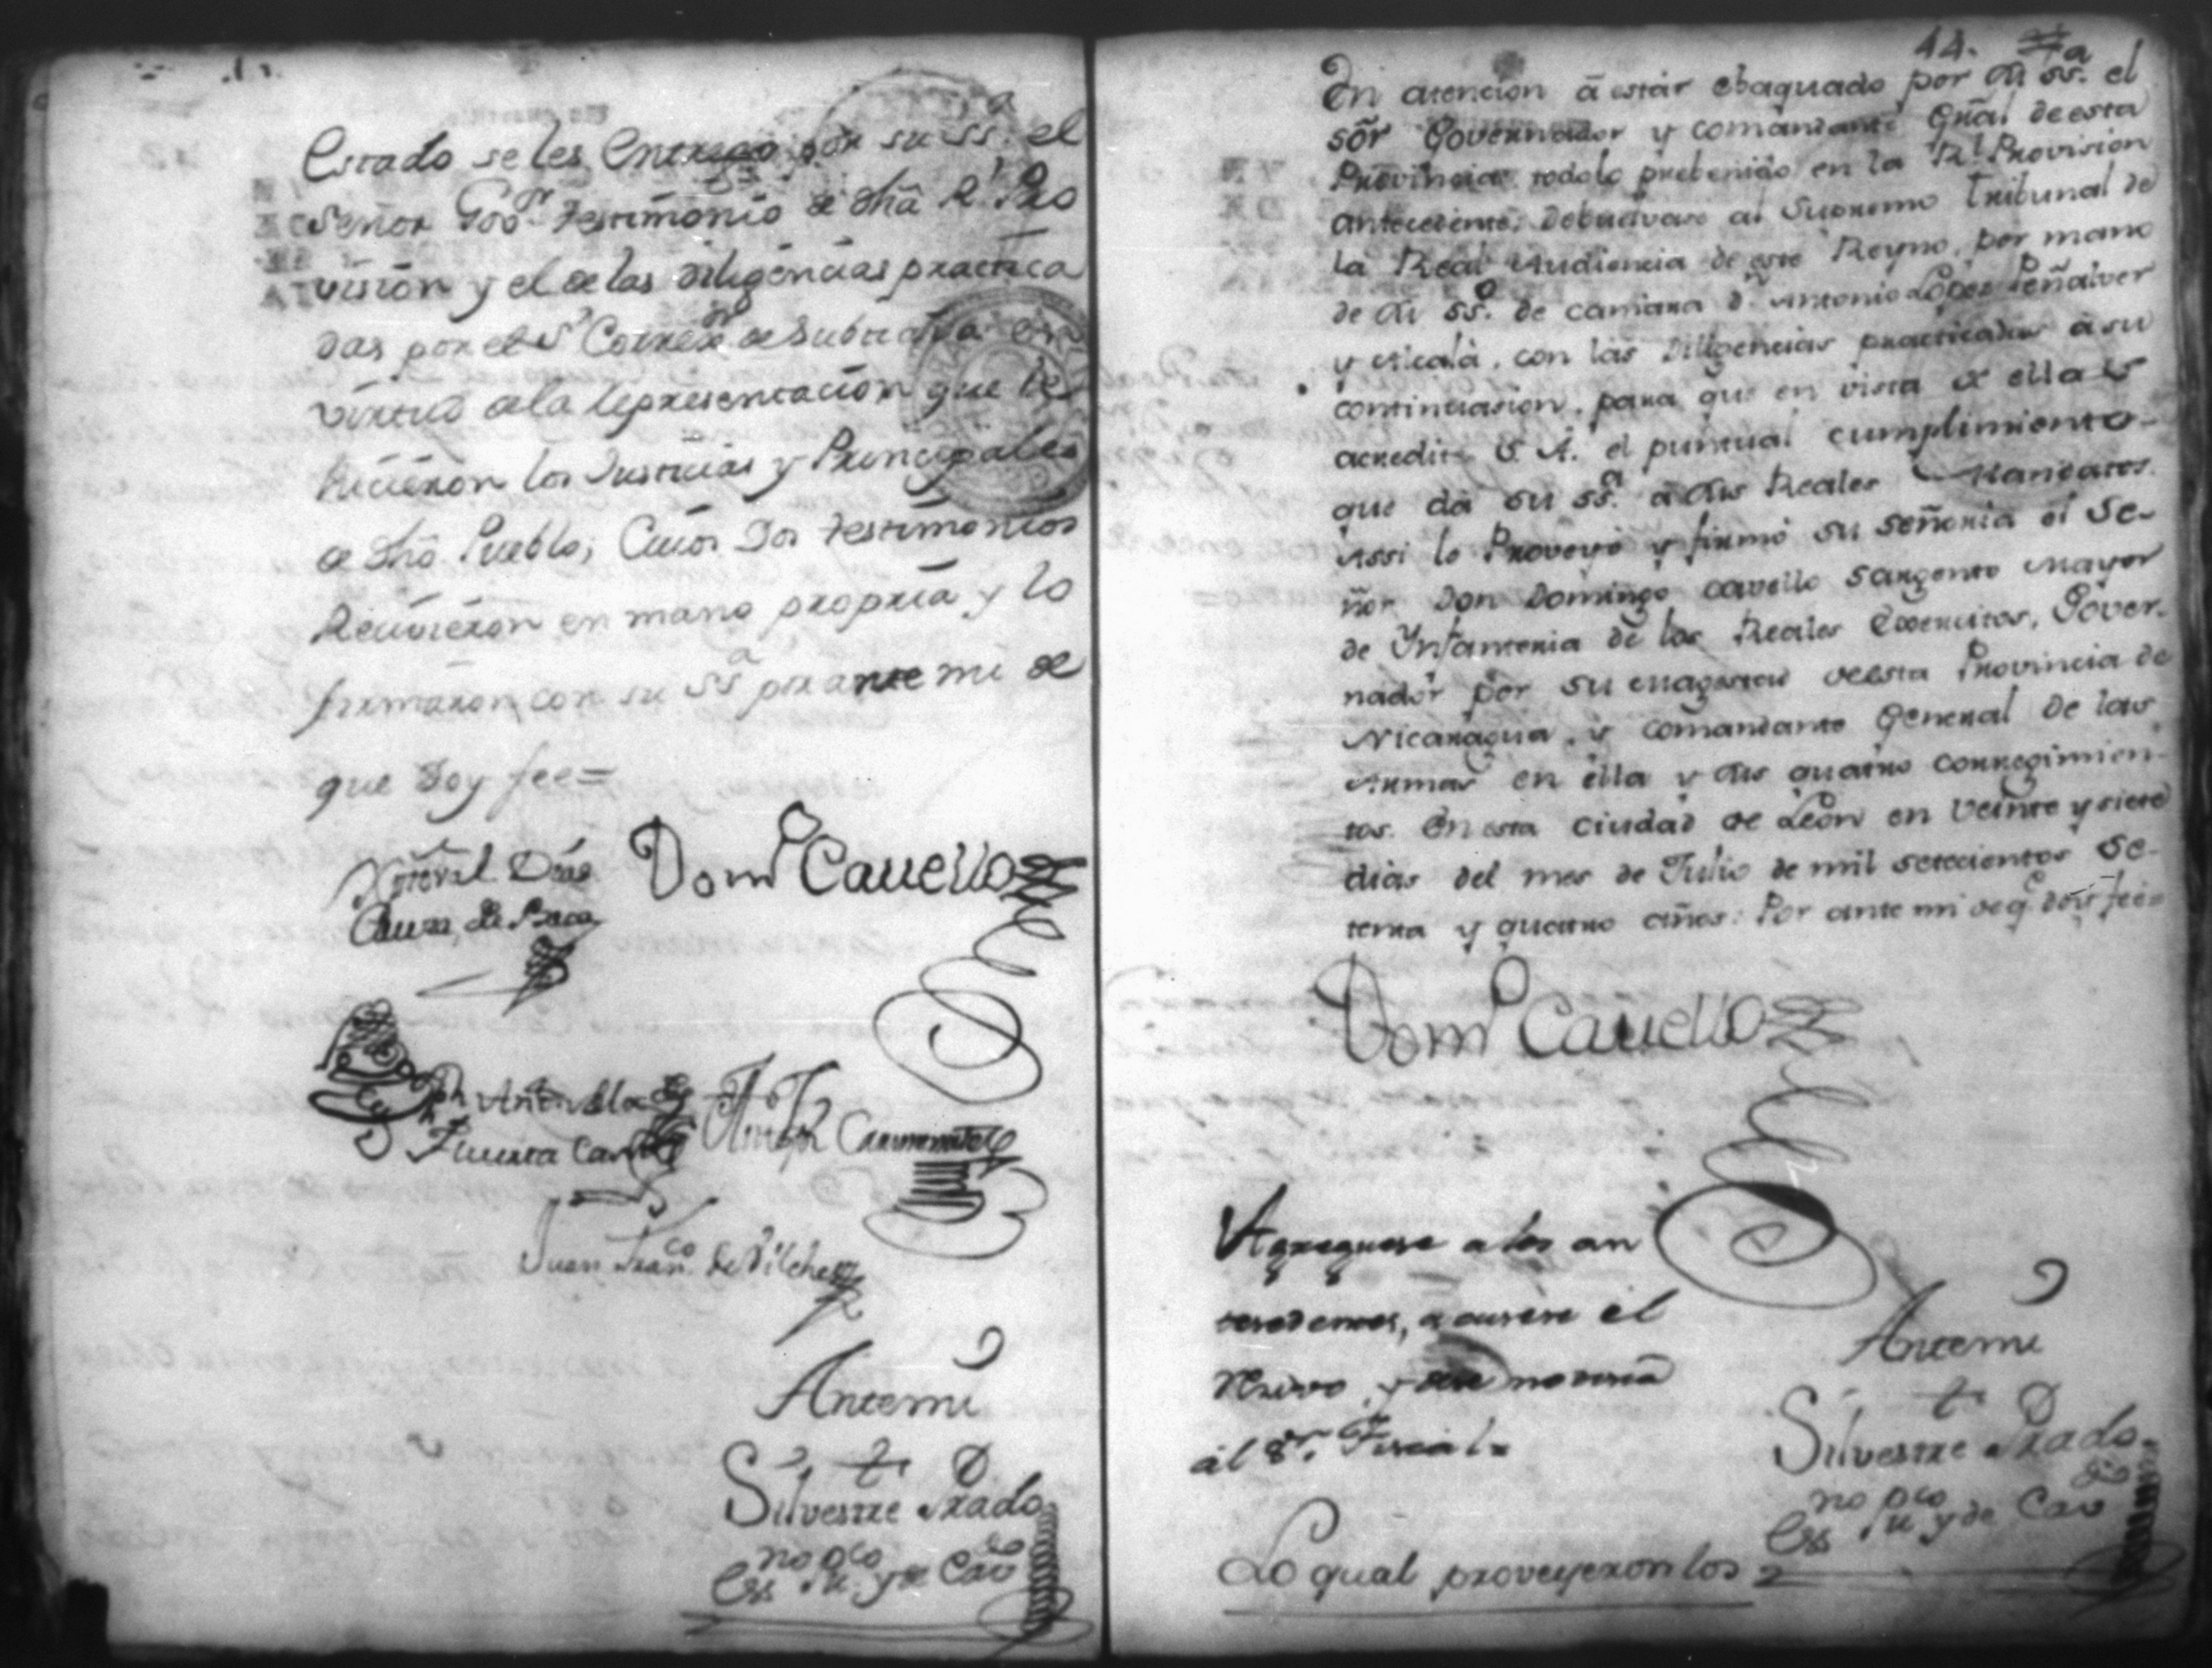 Estado se les Entrego por su ssª. el
Señor Govºr testimonio de dhã Rl. Pro
vision y el de las diligencias practica
das por el Sr. Correxor de Subtiava en
virtud de la representacion que le
hicieron los Justicias y Principales
de dhõ Pueblo; Cuios Dos testimonios
Recivieron en mano propria y lo
firmaron con su ssª por ante mi de
que Doy fee=
Xptoval Dias
Caveza de Baca
Domº Cavello
Juan Franco. de Vilchez
Antemi
Silvestre Prado
Essno Puco. y de Cavdo
44.
En atencion â estár ebaquado por su ssª. el
sõr Governador y comandante Gñal de esta
Provincia, todo lo prebenido en la Rl. Provision
antecedente; debuelvase al Supremo Tribunal de
la Real Audiencia de este Reyno, por mano
de su ssº. de camara dn. Antonio Lópes Peñalver
y Alcalá, con las Diligencias practicadas â su
continuasion, para que en vista de ellas
acredite S. A. el puntual cumplimiento
que dá su ssª. â sus Reales Mandatos.
Assi lo Proveyó y firmó su señoria el Se-
ñor Don Domingo cavello Sargento mayor
de Ynfanteria de los Reales Exercitos, Gover-
nador por su magestad de esta Provincia de
Nicaragua, y comandante General de las
Armas en ella y sus quatro corregimien-
tos. En esta ciudad de León en veinte y siete
dias del mes de Julio de mil setecientos se-
tenta y quatro años: Por ante mi de q.e doy fee=
Domº Cavello
Agreguese a los an
tesedentes, acusese el
Resivo, y
al Sr. Fiscal=
Antemi
Silvestre Prado
Essno Puco y de Cavdo
Lo qual proveyeron los